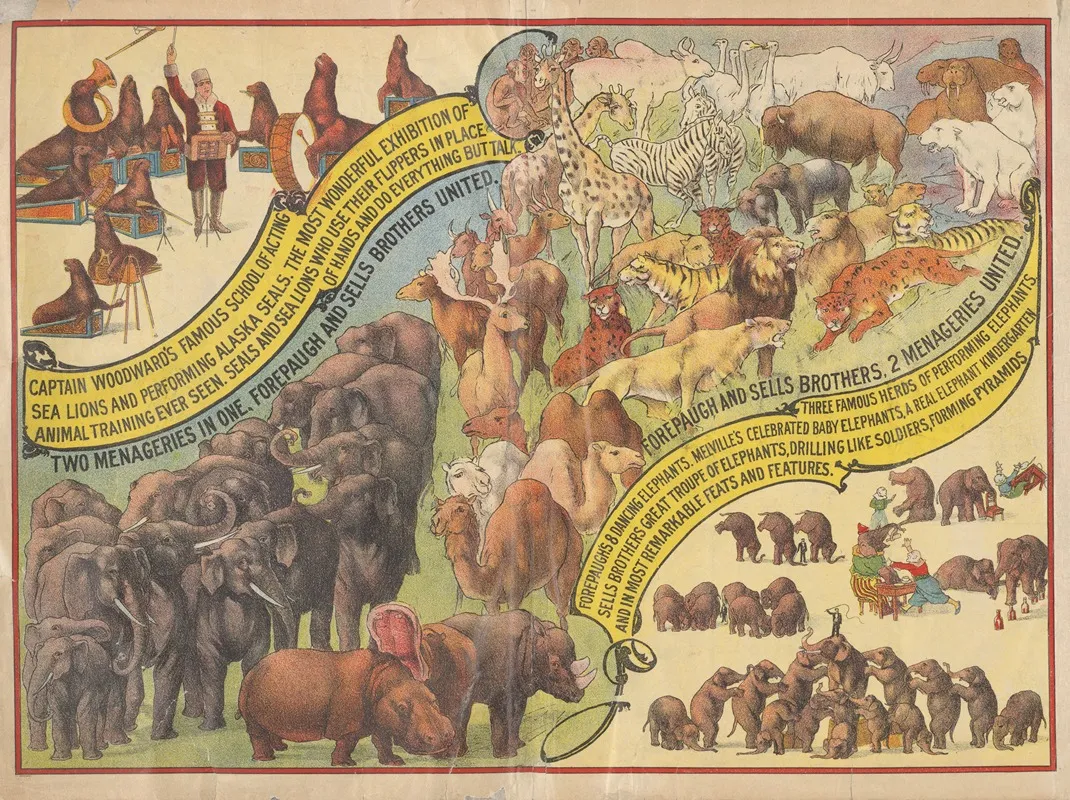 CAPTAIN WOODWARD'S FAMOUS SCHOOL OF ACTING
SEA LIONS AND PERFORMING ALASKA SEALS. THE MOST WONDERFUL EXHIBITION OF
ANIMAL TRAINING EVER SEEN. SEALS AND SEA LIONS WHO USE THEIR FLIPPERS IN PLACE
OF HANDS AND DO EVERYTHING BUT TALK.
TWO MENAGERIES IN ONE. FOREPAUGH AND SELLS BROTHERS UNITED.
FOREPAUGH AND SELLS BROTHERS. 2 MENAGERIES UNITED.
THREE FAMOUS HERDS OF PERFORMING ELEPHANTS
FOREPAUGH'S 8 DANCING ELEPHANTS. MELVILLE'S CELEBRATED BABY ELEPHANTS, A REAL ELEPHANT KINDERGARTEN
SELLS BROTHERS GREAT TROUPE OF ELEPHANTS, DRILLING LIKE SOLDIERS, FORMING PYRAMIDS
AND IN MOST REMARKABLE FEATS AND FEATURES.